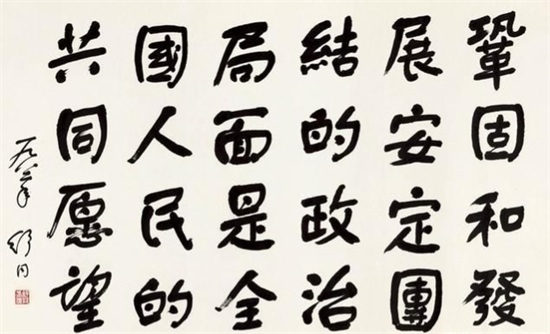 鞏固和發
展安定團
結的政治
局面是全
國人民的
共同愿望
一九八年 舒同